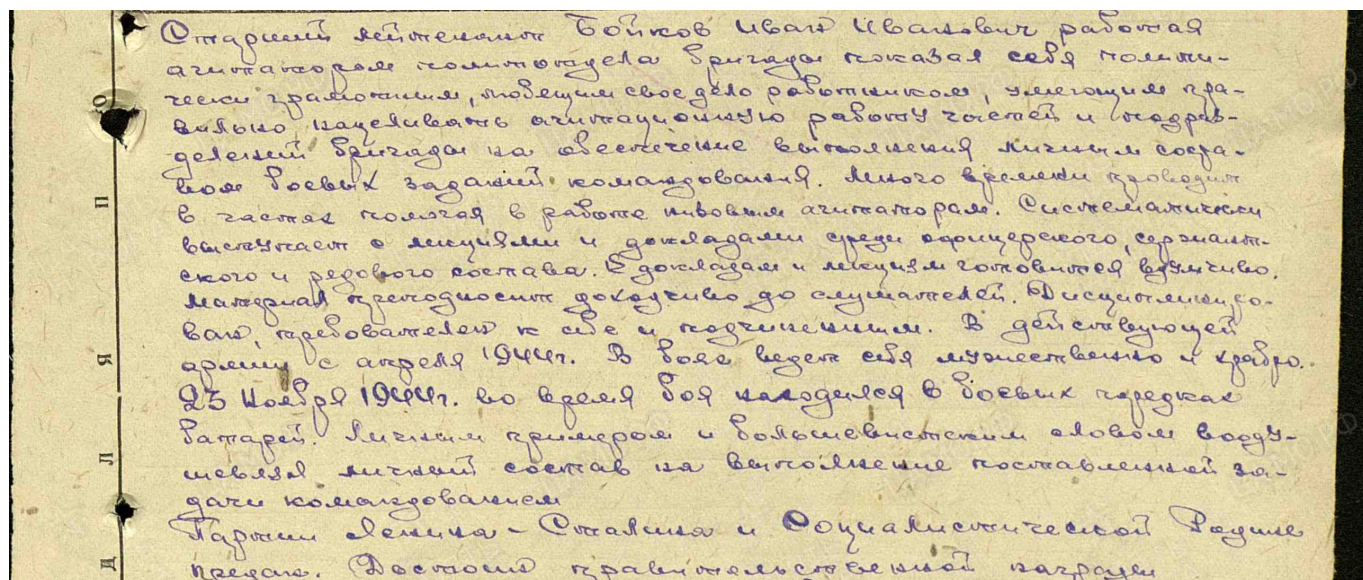 Старший лейтенант Бойков Иван Иванович работая
агитатором политотдела бригады показал себя полити-
чески грамотным, любещим свое дело работником, умеющим пра-
вильно нацеливать агитационную работу частей и подраз-
делений бригады на обеспечение выполнения личным соста-
вом боевых заданий командования. Много времени проводит
в частях помогая в работе низовым агитаторам. Систематически
выступает с лекциями и докладами среди офицерского, сержант-
ского и редового состава. К докладам и лекциям готовится вдумчиво.
Материал преподносит доходчиво до слушателей. Дисциплиниро-
ван, требователен к себе и подчиненным. В действующей
армии с апреля 1944г. В боях ведет себя мужественно и храбро.
25 Ноября 1944г. во время боя находился в боевых порядках
батарей. Личным примером и большевистским словом вооду-
шевлял личный состав на выполнение поставленной за-
дачи командованием
Партии Ленина - Сталина и Социалистической Родине
предан. Достоин правительственной награды
О
П
Я
Л
Д